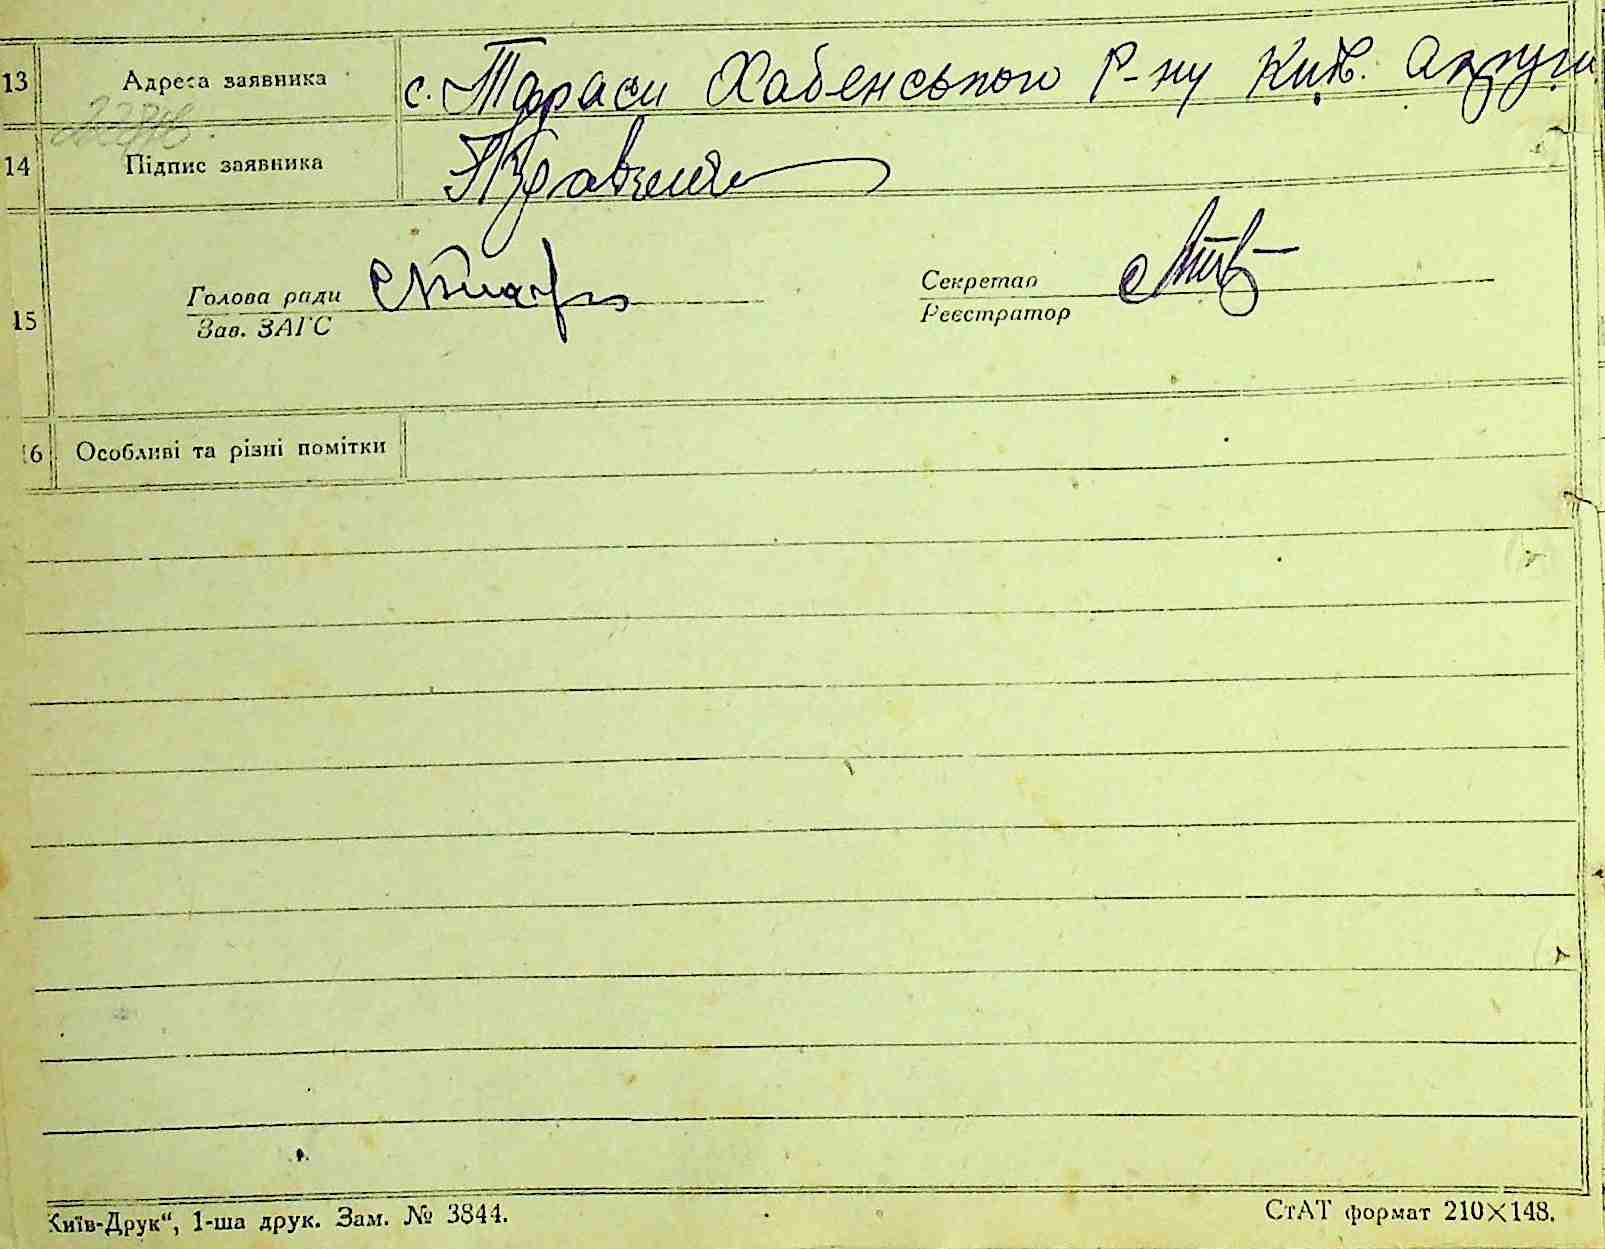 13 Адреса заявника с. Тараси Хабенського р-ну Київ. округи
14 Підпис заявника
Голова ради
Секретар
15
Зав. ЗАГС
Реєстратор
16 Особливі та різні помітки
Київ-Друк“, 1-ша друк. Зам. № 3844.
СтАТ формат 210×148.